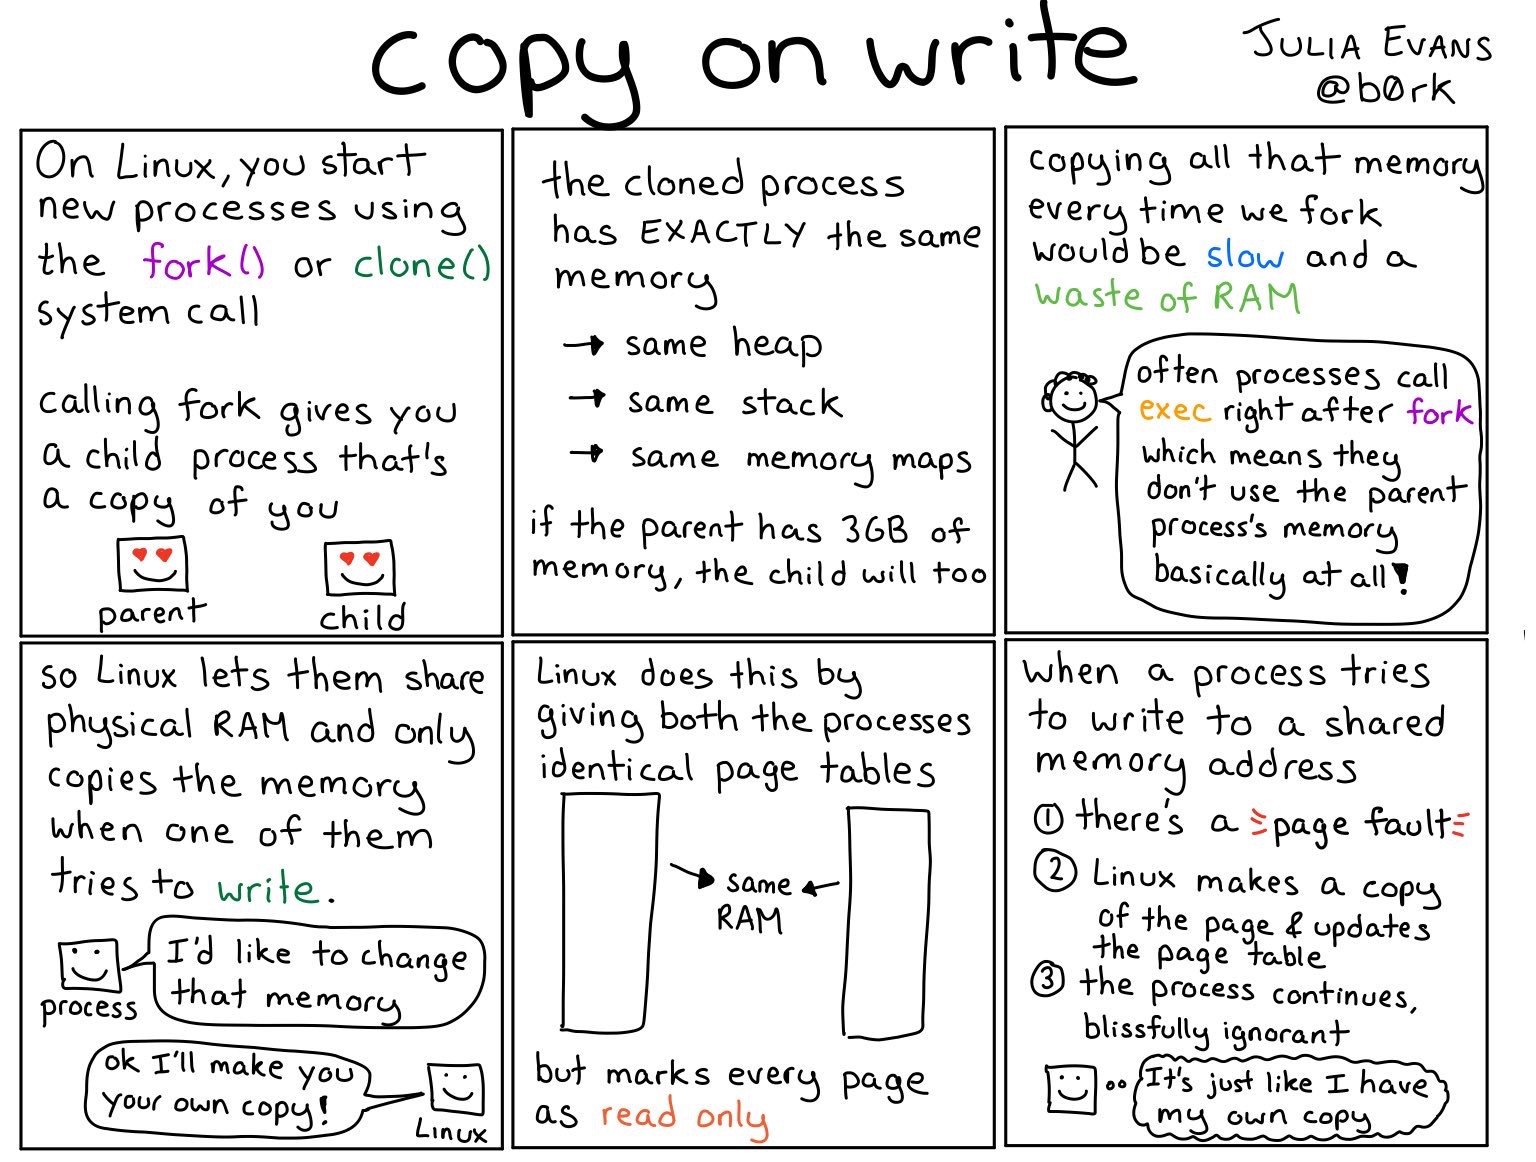 copy on write
JULIA EVANS
@b0rk
On Linux, you start
new processes using
the fork() or clone()
system call
calling fork gives you
a child process that's
a copy of you
parent
child
the cloned process
has EXACTLY the same
memory
→ same heap
→ same stack
→ same memory maps
if the parent has 3GB of
memory, the child will too
copying all that memory
every time we fork
would be slow and a
waste of RAM
often processes call
exec right after fork
which means they
don't use the parent
process's memory
basically at all!
so Linux lets them share
physical RAM and only
copies the memory
when one of them
tries to write.
I'd like to change
that memory
process
ok I'll make you
your own copy!
Linux
Linux does this by
giving both the processes
identical page tables
same
RAM
but marks every page
as read only
when a process tries
to write to a shared
memory address
① there's a page fault
② Linux makes a copy
of the page & updates
the page table
③ the process continues,
blissfully ignorant
It's just like I have
my own copy